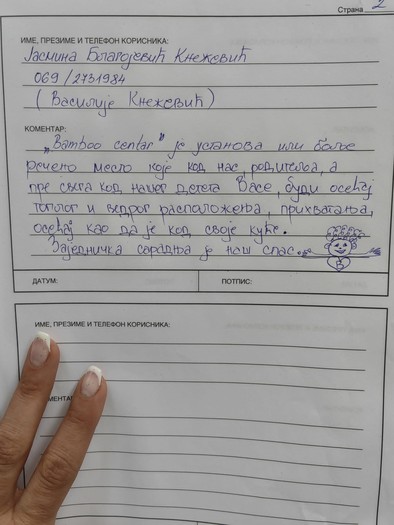 Страна 2
ИМЕ, ПРЕЗИМЕ И ТЕЛЕФОН КОРИСНИКА:
Јасмина Благојевић Кнежевић
069/2731984
(Василије Кнежевић)
КОМЕНТАР:
„Bamboo centar" је установа или боље
речено место које код нас родитеља, а
пре свега код нашег детета Васе, буди осећај
топлог и ведрог расположења, прихватања,
осећај као да је код своје куће.
Заједничка сарадња је наш спас.
ДАТУМ:
ПОТПИС:
ИМЕ, ПРЕЗИМЕ И ТЕЛЕФОН КОРИСНИКА: